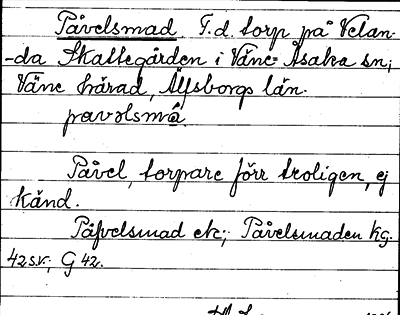 Påvelsmad. F.d. torp på Velan-
-da Skattegården i Väne-Åsaka sn;
Väne härad, Älfsborgs län.
pavəlsmå.
Påvel, torpare förr troligen, ej
känd.
Påfvelsmad ek; Påvelsmaden kg.
42 s.v.; G 42.